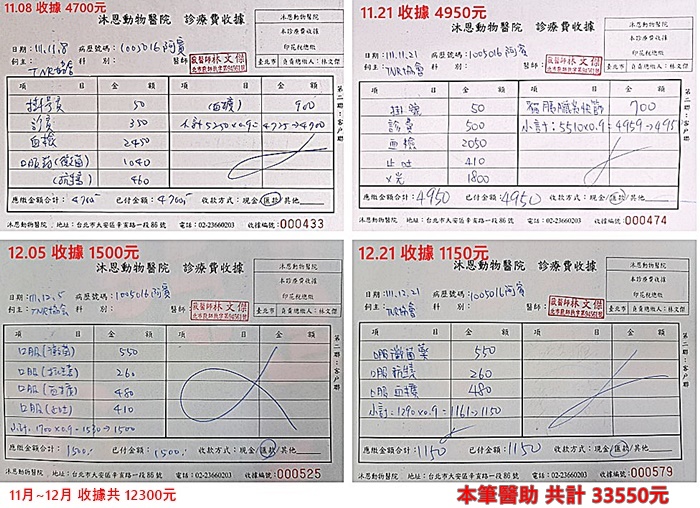 11.08 收據 4700元
沐恩動物醫院 診療費收據
沐恩動物醫院
本診療費收據
印花稅總繳
日期:111.11.8 病歷號碼:1005016阿賓
飼主:TNR協會 科別: 醫師:獸醫師林文傑
臺北市 負責總繳人:林文傑
項目 金額 項目 金額
掛號費 50 (血糖) 900
診費 350 小計5250×0.9=4725→4700
血檢 2450
口服藥(黴菌) 1040
460
應繳金額合計:4700 已付金額:4700 收款方式:現金/匯款/其他
沐恩動物醫院 地址:台北市大安區辛亥路一段86號 電話:02-23660203 收據編號:000433
第二聯:客戶聯
11.21 收據 4950元
沐恩動物醫院 診療費收據
沐恩動物醫院
本診療費收據
印花稅總繳
日期:111.11.21 病歷號碼:1005016阿賓
飼主:TNR協會 科別: 醫師:獸醫師林文傑
臺北市 負責總繳人:林文傑
項目 金額 項目 金額
掛號 50 700
診費 500 小計:5510×0.9=4959→4950
血檢 2050
止吐 410
X光 1800
應繳金額合計:4950 已付金額:4950 收款方式:現金/匯款/其他
沐恩動物醫院 地址:台北市大安區辛亥路一段86號 電話:02-23660203 收據編號:000474
第二聯:客戶聯
12.05 收據 1500元
沐恩動物醫院 診療費收據
沐恩動物醫院
本診療費收據
印花稅總繳
日期:111.12.5 病歷號碼:1005016阿賓
飼主:TNR協會 科別: 醫師:獸醫師林文傑
臺北市 負責總繳人:林文傑
項目 金額 項目 金額
口服(黴菌) 550
口服 260
口服 480
口服(止吐) 410
小計:1700×0.9=1530→1500
應繳金額合計:1500 已付金額:1500 收款方式:現金/匯款/其他
沐恩動物醫院 地址:台北市大安區辛亥路一段86號 電話:02-23660203 收據編號:000525
第二聯:客戶聯
12.21 收據 1150元
沐恩動物醫院 診療費收據
沐恩動物醫院
本診療費收據
印花稅總繳
日期:111.12.21 病歷號碼:1005016阿賓
飼主:TNR協會 科別: 醫師:獸醫師林文傑
臺北市 負責總繳人:林文傑
項目 金額 項目 金額
口服黴菌藥 550
口服 260
口服血糖 480
小計:1290×0.9=1161→1150
應繳金額合計:1150 已付金額:1150 收款方式:現金/匯款/其他
沐恩動物醫院 地址:台北市大安區辛亥路一段86號 電話:02-23660203 收據編號:000579
第二聯:客戶聯
11月~12月 收據共 12300元
本筆醫助 共計 33550元